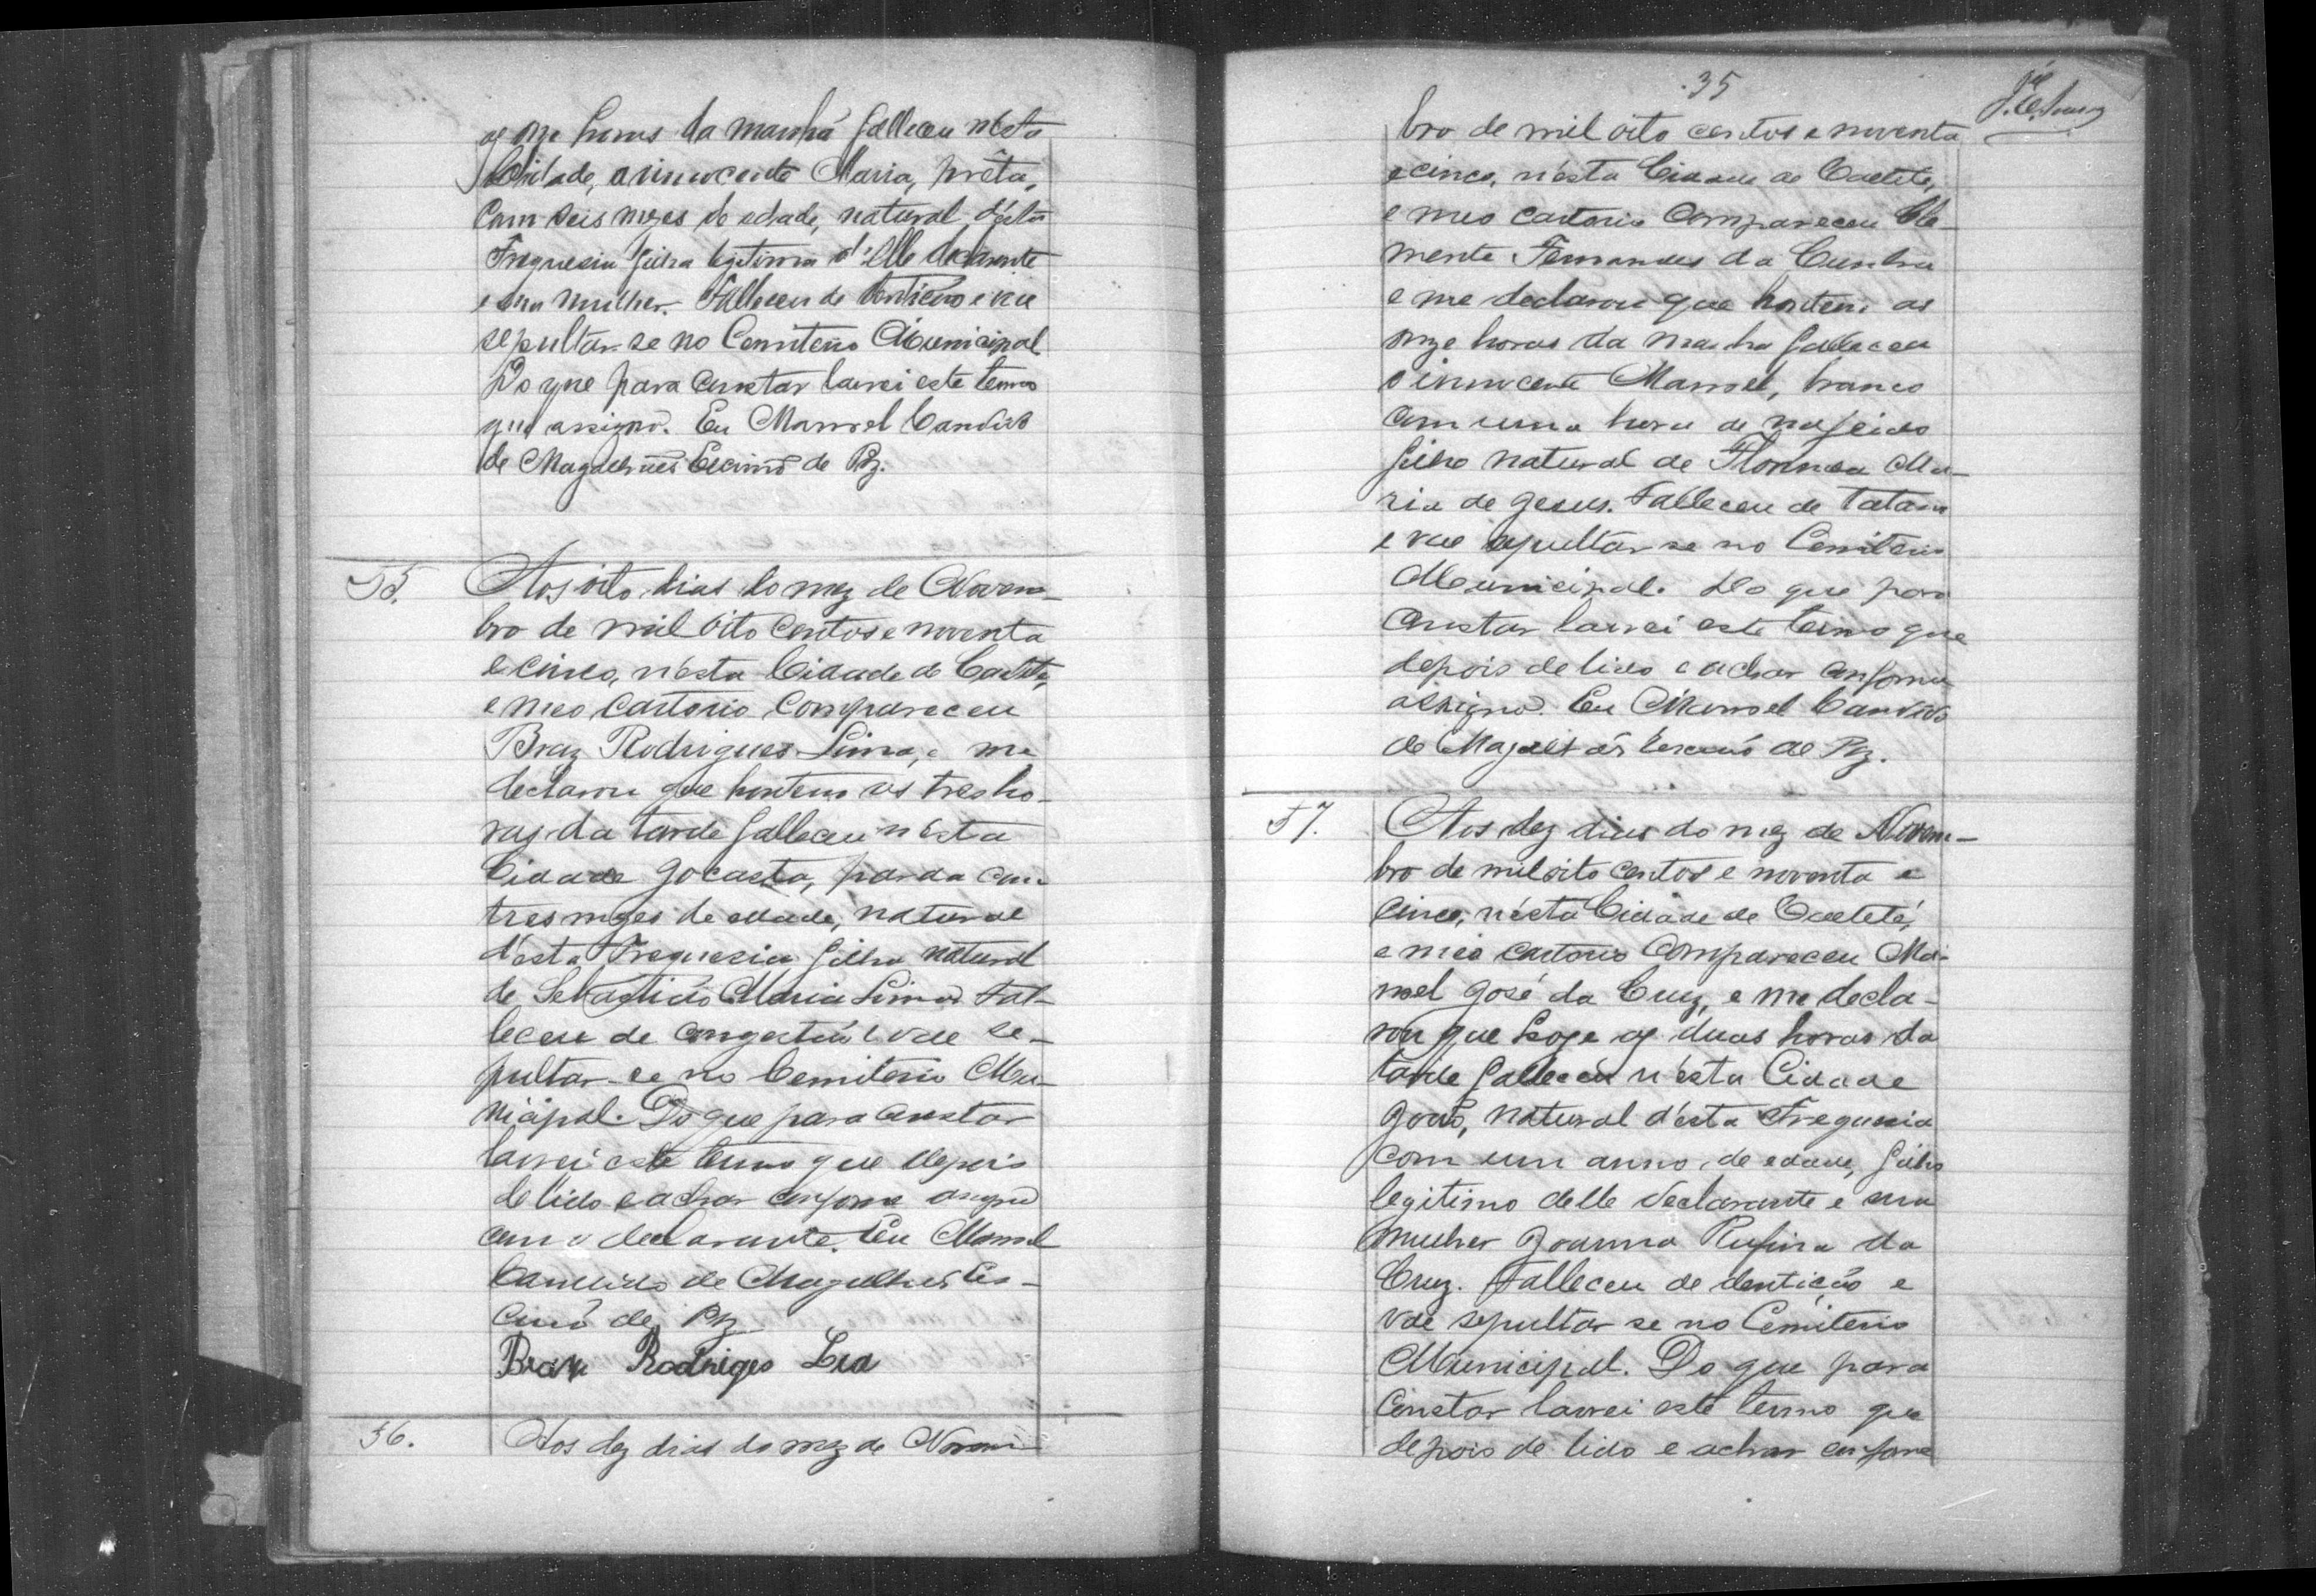 as onze horas da manhã falleceu nésta
Cidade, a innocente Maria, prêta,
com seis mezes de edade, natural d'ésta
Freguesia filha legitima d'elle declarante
e sua mulher. Falleceu de dentição e vae
sepultar-se no Cemiterio Municipal
Do que para constar lavrei este termo
que assigno. Eu Manoel Candido
de Magalhães Escrivão de Pz.
55. Aos oito dias do mez de Novem-
bro de mil oito centos e noventa
e cinco, n'ésta Cidade de Caeteté,
e meo cartorio compareceu
Braz Rodrigues Lima, e me
declarou que hontem as tres ho-
ras da tarde falleceu n'ésta
Cidade Jocasta, parda com
tres mezes de edade, natural
d'ésta Freguesia filha natural
de Maria Lima. Fal-
leceu de congestão e vae se-
pultar-se no Cemiterio Mu-
nicipal. Do que para constar
lavrei este termo que depois
de lido e achar conforme assigno
com o declarante. Eu Manoel
Candido de Magalhães Es-
crivão de Pz
Braz Rodriges Lia
56. Aos dez dias do mez de Novem-
35
bro de mil oito centos e noventa
e cinco, n'ésta Cidade de Caeteté,
e meo cartorio compareceu Cle-
mente Fernandes da Cunha
e me declarou que hontem as
onze horas da manha falleceu
o innocente Manoel, branco
com uma hora de nascido
filho natural de Ma-
ria de Jesus. Falleceu de tetano
e vae sepultar se no Cemiterio
Municipal. Do que para
constar lavrei este termo que
depois de lido e achar conforme
assigno. Eu Manoel Candido
de Magalhães Escrivão de Pz.
57. Aos dez dias do mez de Novem-
bro de mil oito centos e noventa e
cinco, n'ésta Cidade de Caeteté,
e meo cartorio compareceu Ma-
noel José da Cruz, e me decla-
rou que hoje as duas horas da
tarde falleceu n'ésta Cidade
João, natural d'ésta Freguesia
com um anno de edade, filho
legitimo delle declarante e sua
mulher Joanna Rufina da
Cruz. Falleceu de dentição e
vae sepultar se no Cemiterio
Municipal. Do que para
constar lavrei este termo que
depois de lido e achar conforme